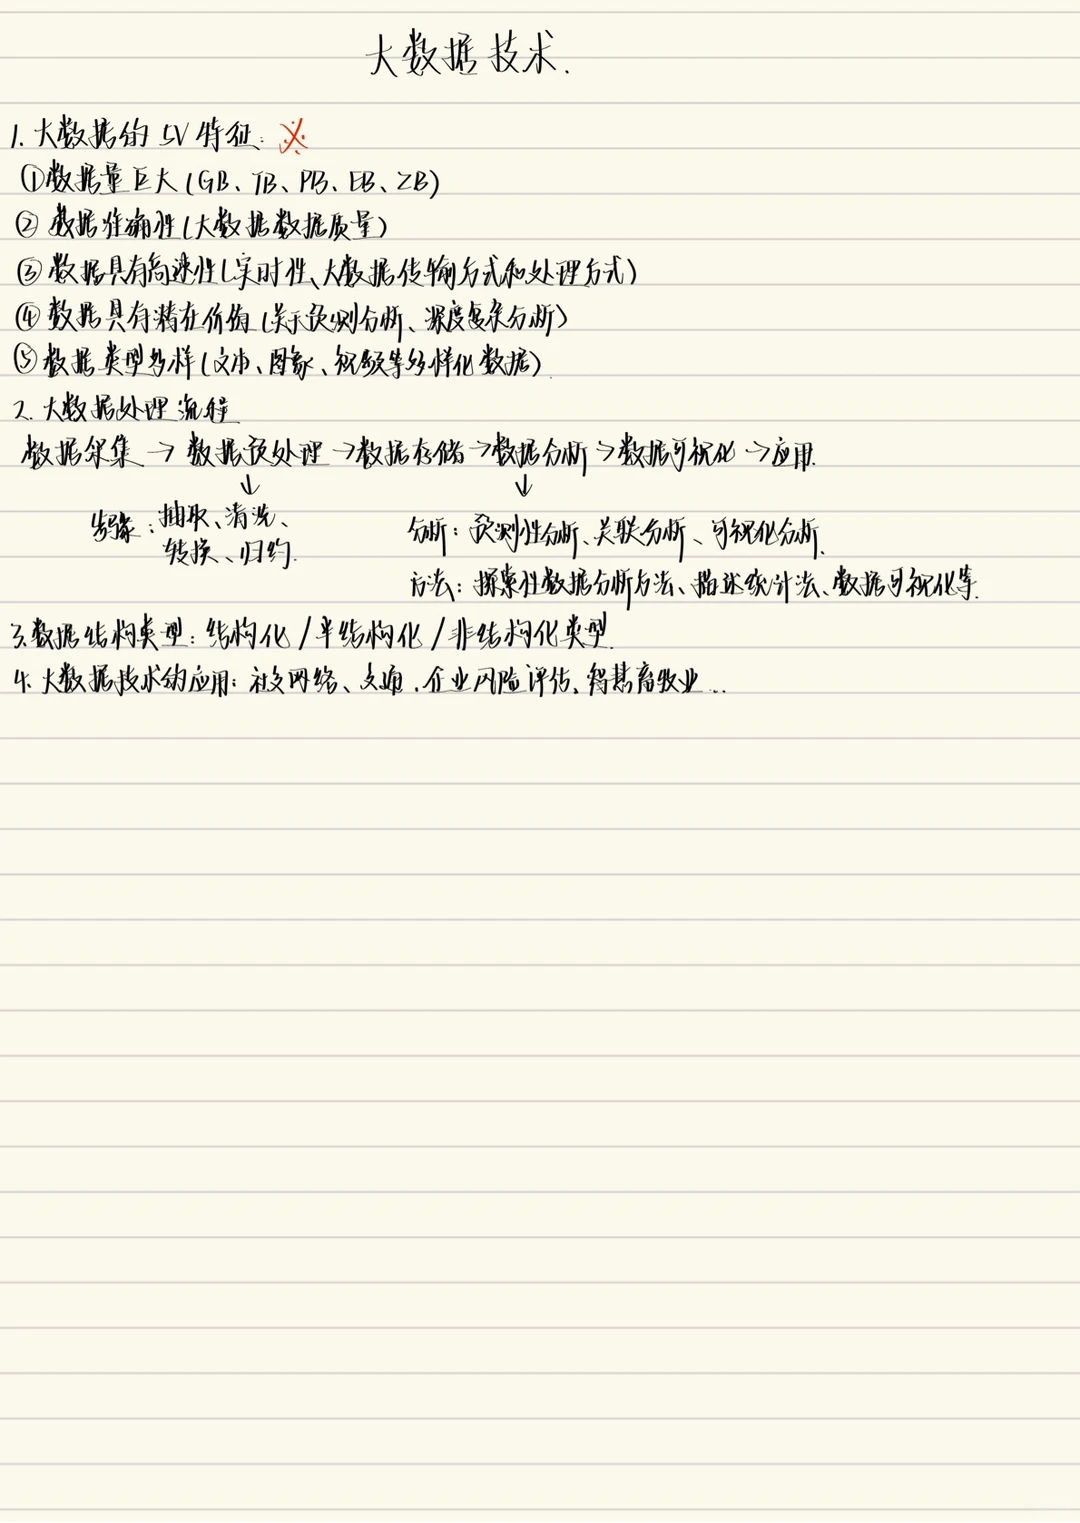 大数据技术.
1. 大数据的 5V 特征: ※
①数据量巨大(GB、TB、PB、EB、ZB)
② 数据准确性(大数据数据质量)
③ 数据具有高速性(实时性、大数据传输方式和处理方式)
④ 数据具有潜在价值(关于预测分析、深度复杂分析)
⑤ 数据类型多样(文本、图象、视频等多样化数据)
2. 大数据处理流程
数据采集 → 数据预处理 → 数据存储 → 数据分析 → 数据可视化 → 应用.
↓ ↓
步骤: 抽取、清洗、
转换、归约.
分析: 预测性分析、关联分析、可视化分析.
方法: 探索性数据分析方法、描述统计法、数据可视化等.
3. 数据结构类型: 结构化 / 半结构化 / 非结构化类型.
4. 大数据技术的应用: 社交网络、交通、企业风险评估、智慧畜牧业...